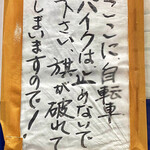 ここに自転車
バイクは止めないで
下さい、旗が破れて
しまいますので!